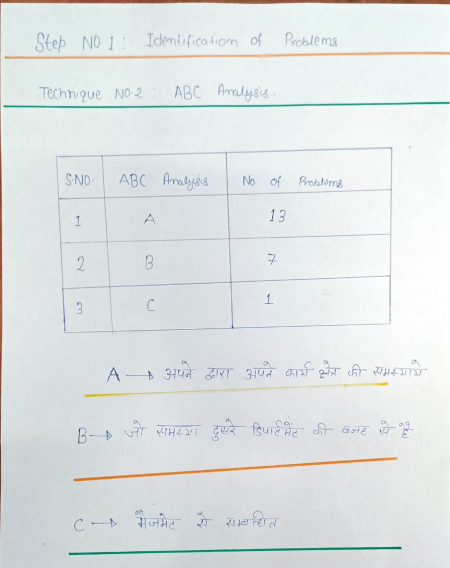 Step NO.1: Identification of Problems
Technique NO.2: ABC Analysis.
S.NO. ABC Analysis No. of Problems
1 A 13
2 B 7
3 C 1
A → अपने द्वारा अपने कार्य क्षेत्र की समस्याये
B → जो समस्या दुसरे डिपार्टमेंट की वजह से है
C → मैंजमेट से सम्बन्धित